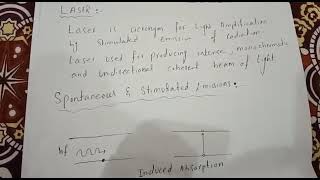 LASER:-
Laser is acronym for Light Amplification
by Stimulated emission of radiation.
Laser used for producing intense, monochromatic
and Unidirectional coherent beam of light
Spontaneous & Stimulated Emissions.
hf
Induced Absorption